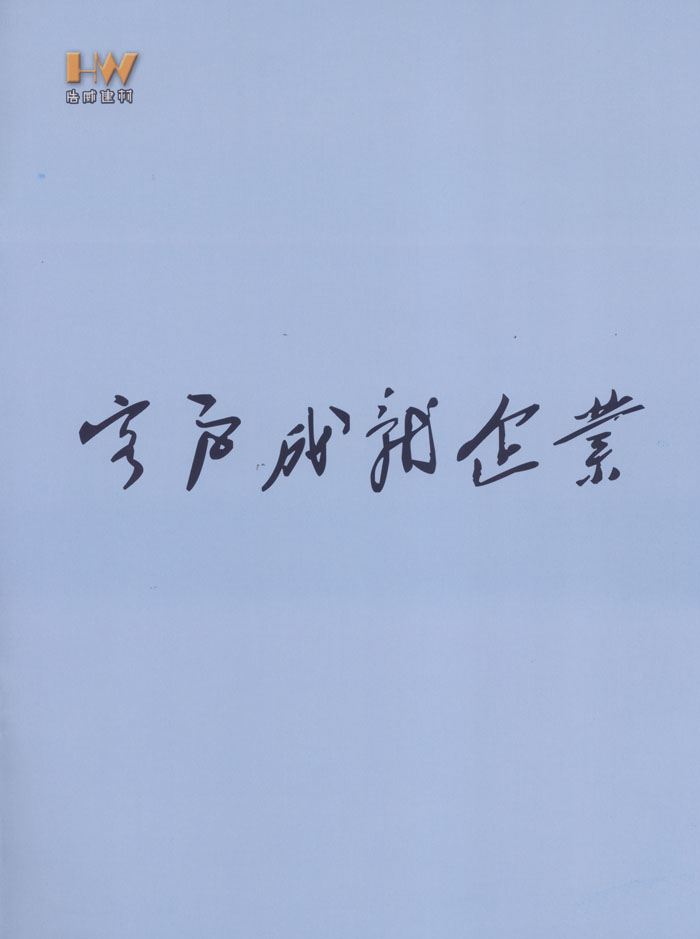 HW
浩威建材
客户成就企業